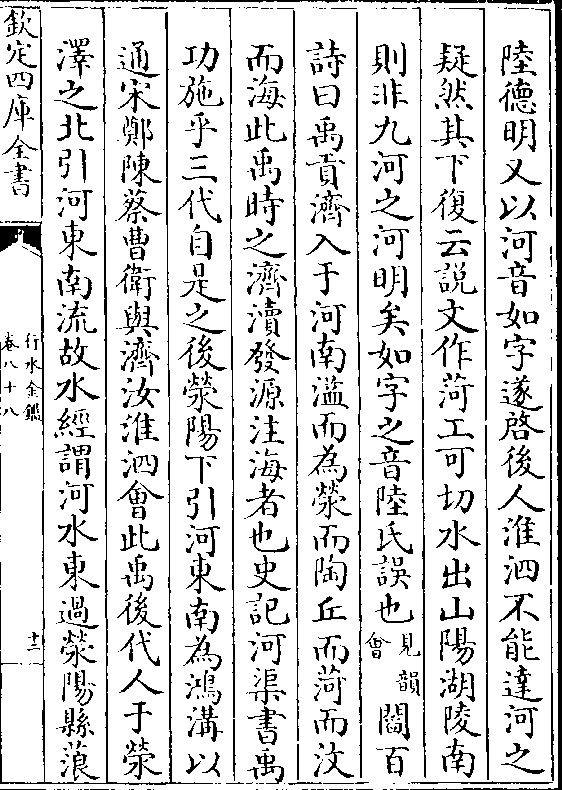 陸德明又以河音如字遂啓後人淮泗不能達河之
疑然其下復云說文作菏工可切水出山陽湖陵南
則非九河之河明矣如字之音陸氏誤也見韻會閻百
詩曰禹貢濟入于河南溢而為滎而陶丘而菏而汶
而海此禹時之濟瀆發源注海者也史記河渠書禹
功施乎三代自是之後滎陽下引河東南為鴻溝以
通宋鄭陳蔡曹衛與濟汝淮泗會此禹後代人于滎
澤之北引河東南流故水經謂河水東過滎陽縣蒗
欽定四庫全書
行水金鑑
卷八十八
十二